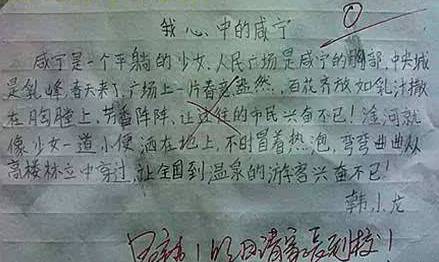 0
我心中的咸宁
咸宁是一个平躺的少女,人民广场是咸宁的胸部,中央城
是乳峰,春天来了,广场上一片春意盎然,百花齐放如乳汁撒
在胸膛上,芳香阵阵,让过往的市民兴奋不已!淦河就
像少女一道小便洒在地上,不时冒着热泡,弯弯曲曲从
高楼林立中穿过,让全国到温泉的游客兴奋不已!
韩小龙
!明日请家长到校!